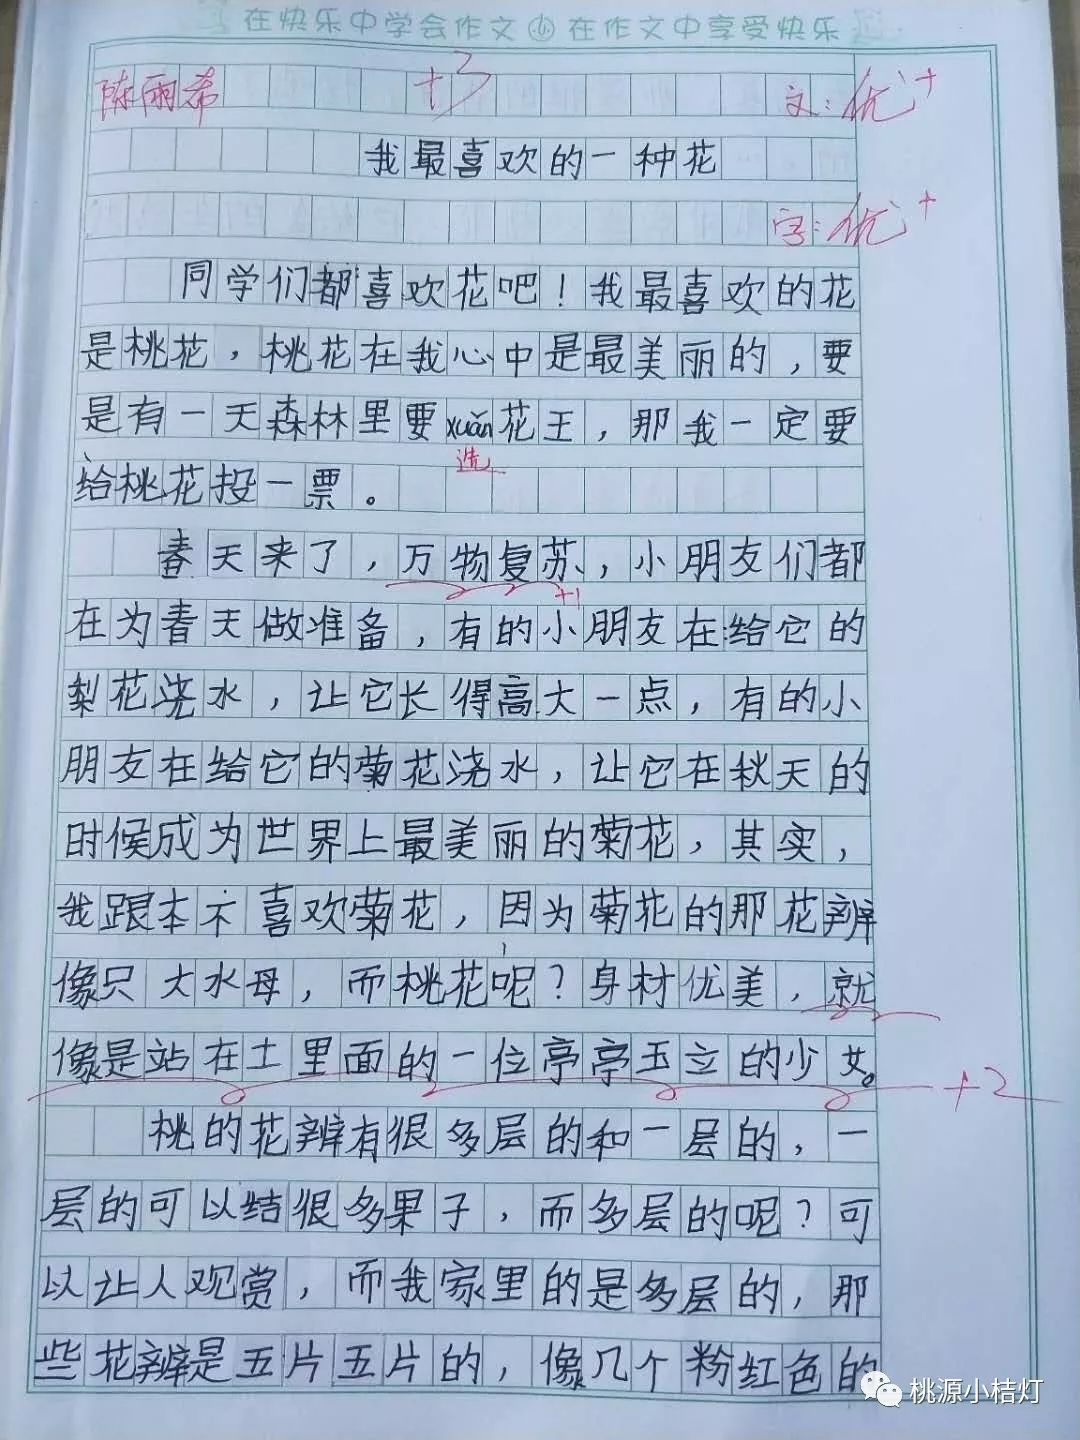 在快乐中学会作文 小 在作文中享受快乐
陈雨希 +3 文:优+
我最喜欢的一种花
字:优+
同学们都喜欢花吧!我最喜欢的花
是桃花,桃花在我心中是最美丽的,要
是有一天森林里要xuǎn花王,那我一定要
选
给桃花投一票。
春天来了,万物复苏,小朋友们都
+1
在为春天做准备,有的小朋友在给它的
梨花浇水,让它长得高大一点,有的小
朋友在给它的菊花浇水,让它在秋天的
时候成为世界上最美丽的菊花,其实,
我跟本不喜欢菊花,因为菊花的那花辨
像只大水母,而桃花呢?身材优美,就
像是站在土里面的一位亭亭玉立的少女。
+2
桃的花辨有很多层的和一层的,一
层的可以结很多果子,而多层的呢?可
以让人观赏,而我家里的是多层的,那
些花辨是五片五片的,像几个粉红色的
桃源小桔灯